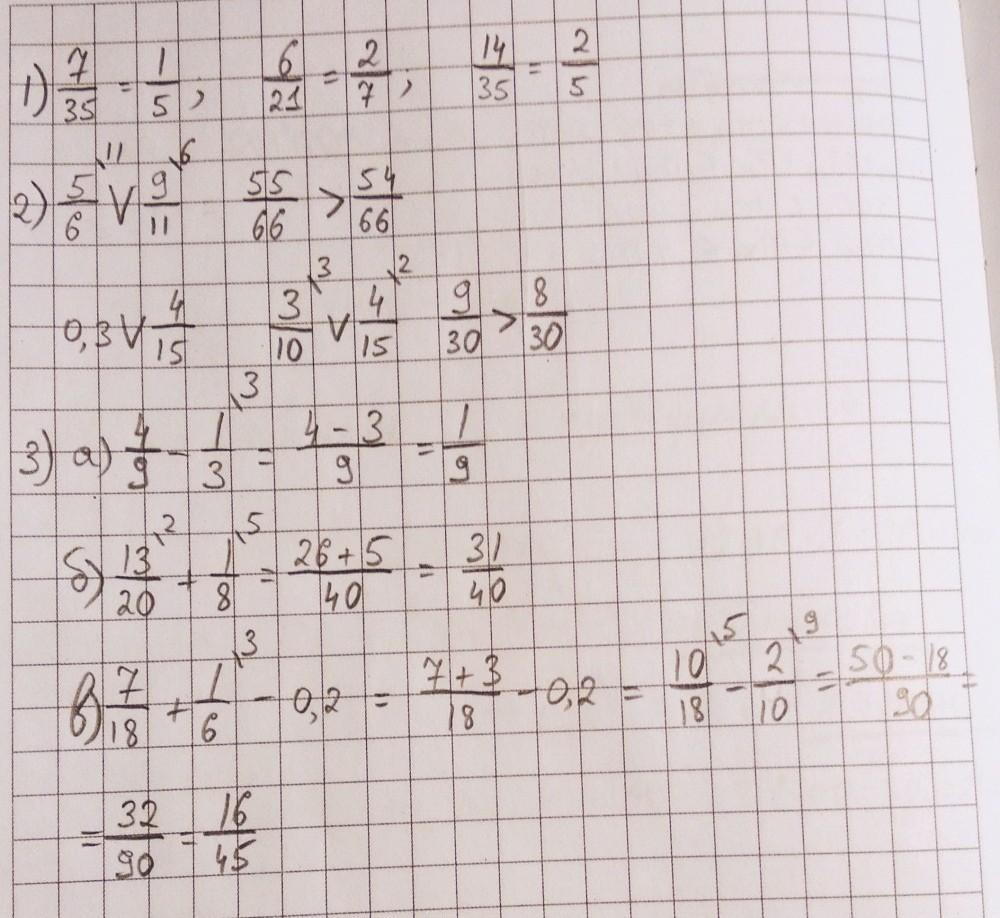 1) 7/35 = 1/5; 6/21 = 2/7; 14/35 = 2/5
2) 5/6 \11 V 9/11 \6 55/66 > 54/66
0,3 V 4/15 3/10 \3 V 4/15 \2 9/30 > 8/30
3) а) 4/9 - 1/3 \3 = (4 - 3)/9 = 1/9
б) 13/20 \2 + 1/8 \5 = (26 + 5)/40 = 31/40
в) 7/18 + 1/6 \3 - 0,2 = (7 + 3)/18 - 0,2 = 10/18 \5 - 2/10 \9 = (50 - 18)/90 =
= 32/90 = 16/45